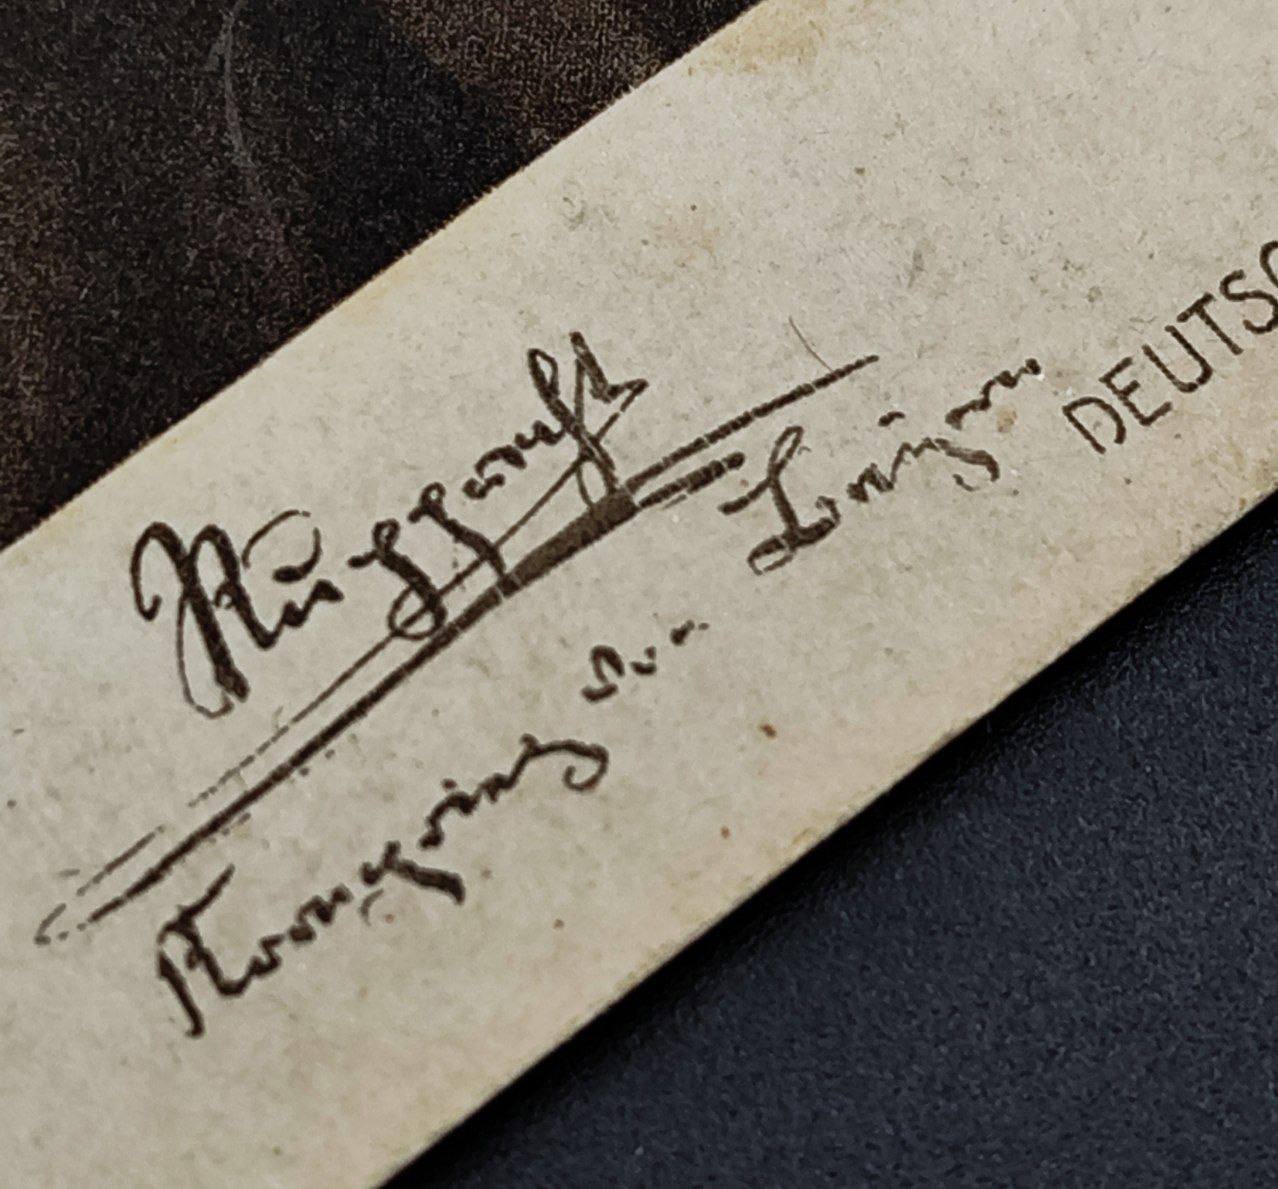 Rupprecht
Kronprinz von Bayern
DEUTSC